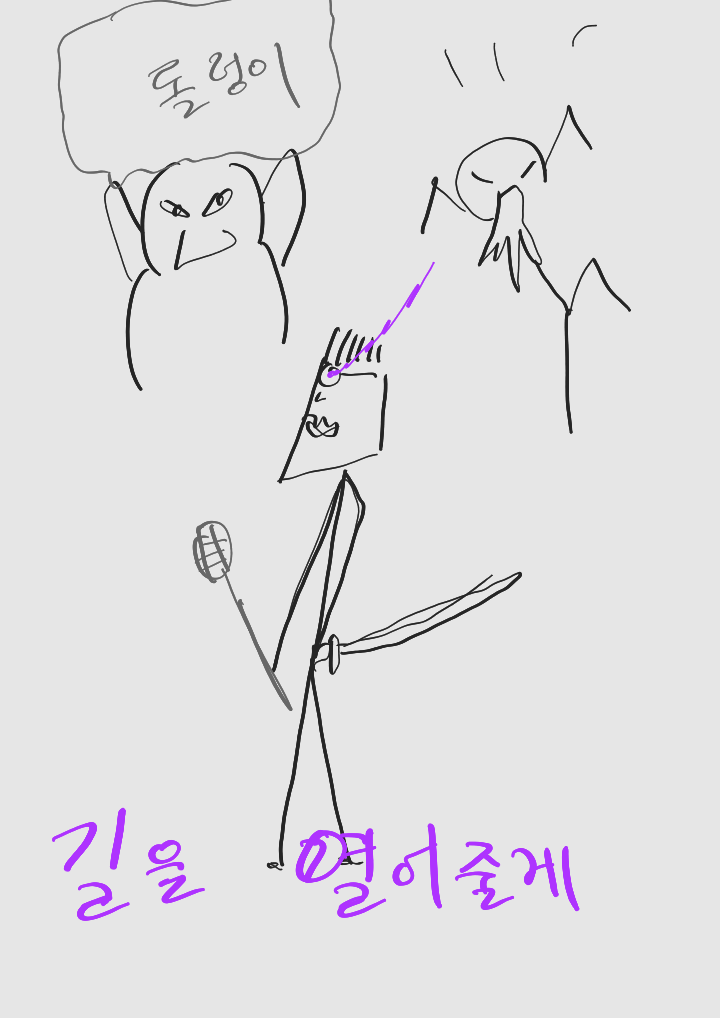 돌렁이
길을 열어줄게